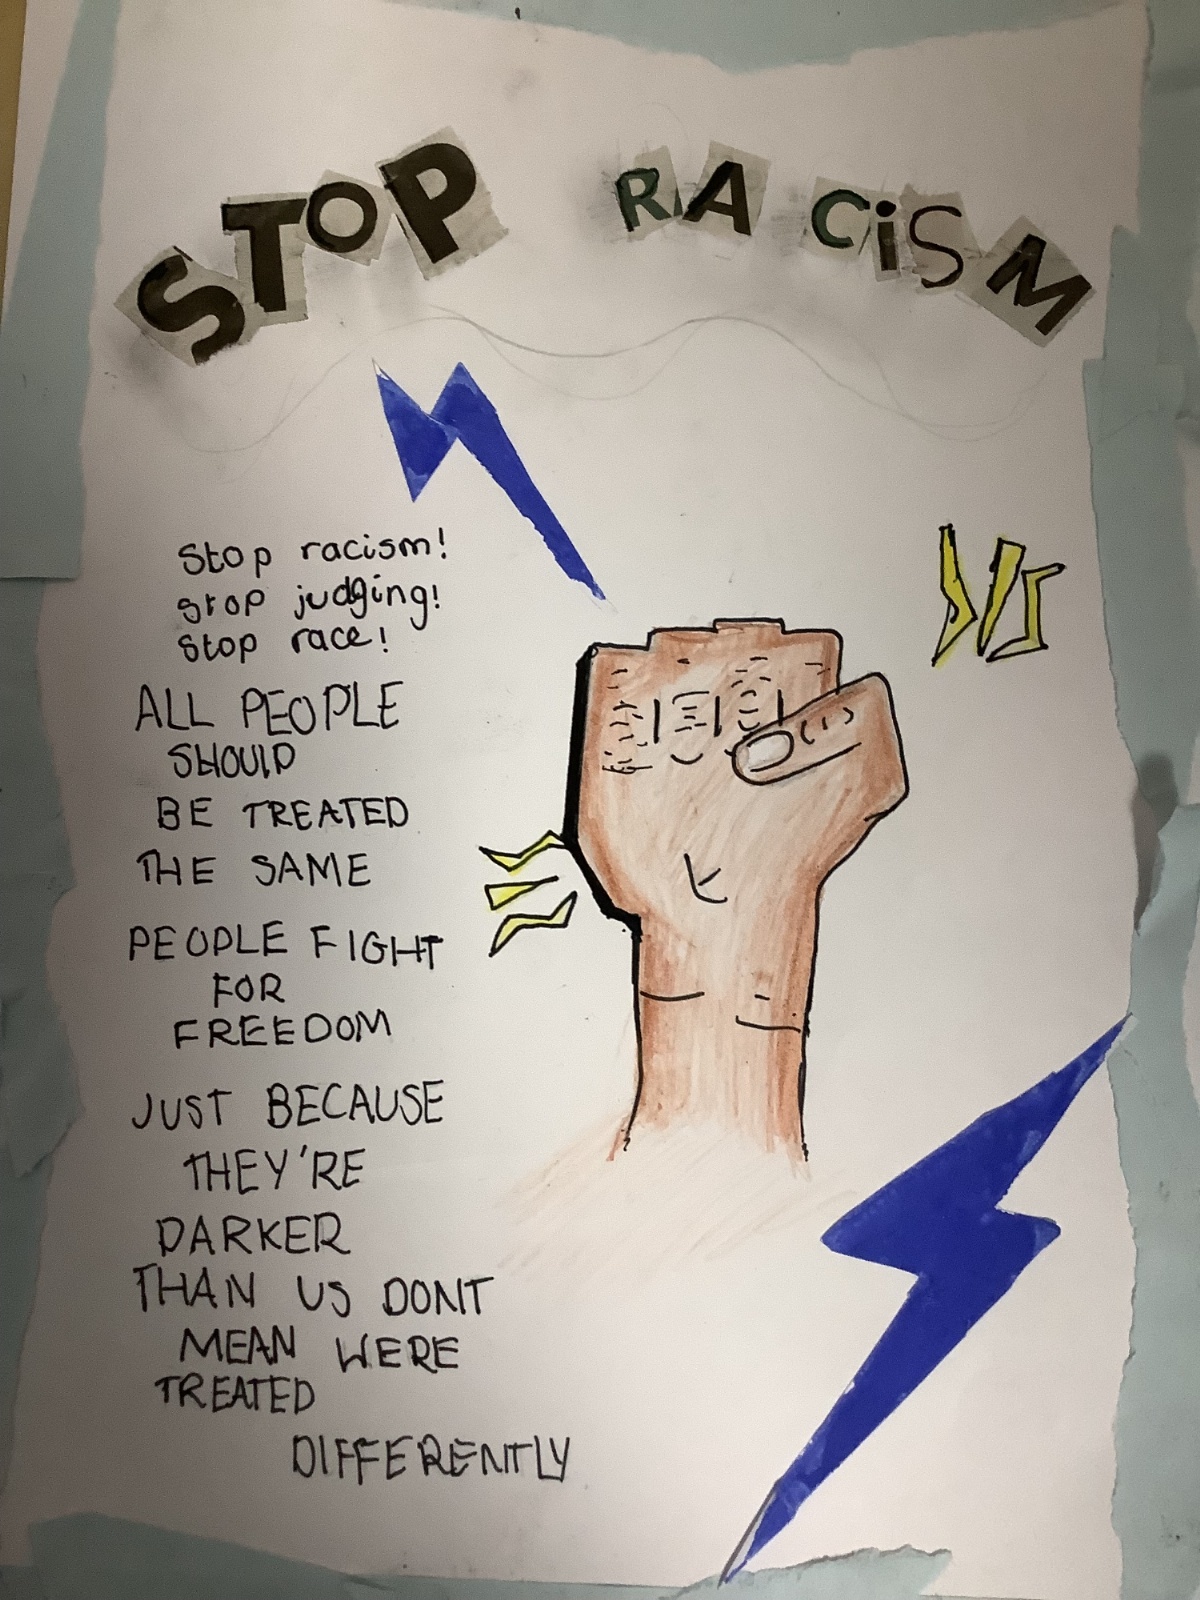 STOP RACiSM
Stop racism!
stop judging!
Stop race!
ALL PEOPLE
SHOULD
BE TREATED
THE SAME
PEOPLE FIGHT
FOR
FREEDOM
JUST BECAUSE
THEY'RE
DARKER
THAN US DONT
MEAN WERE
TREATED
DIFFERENTLY